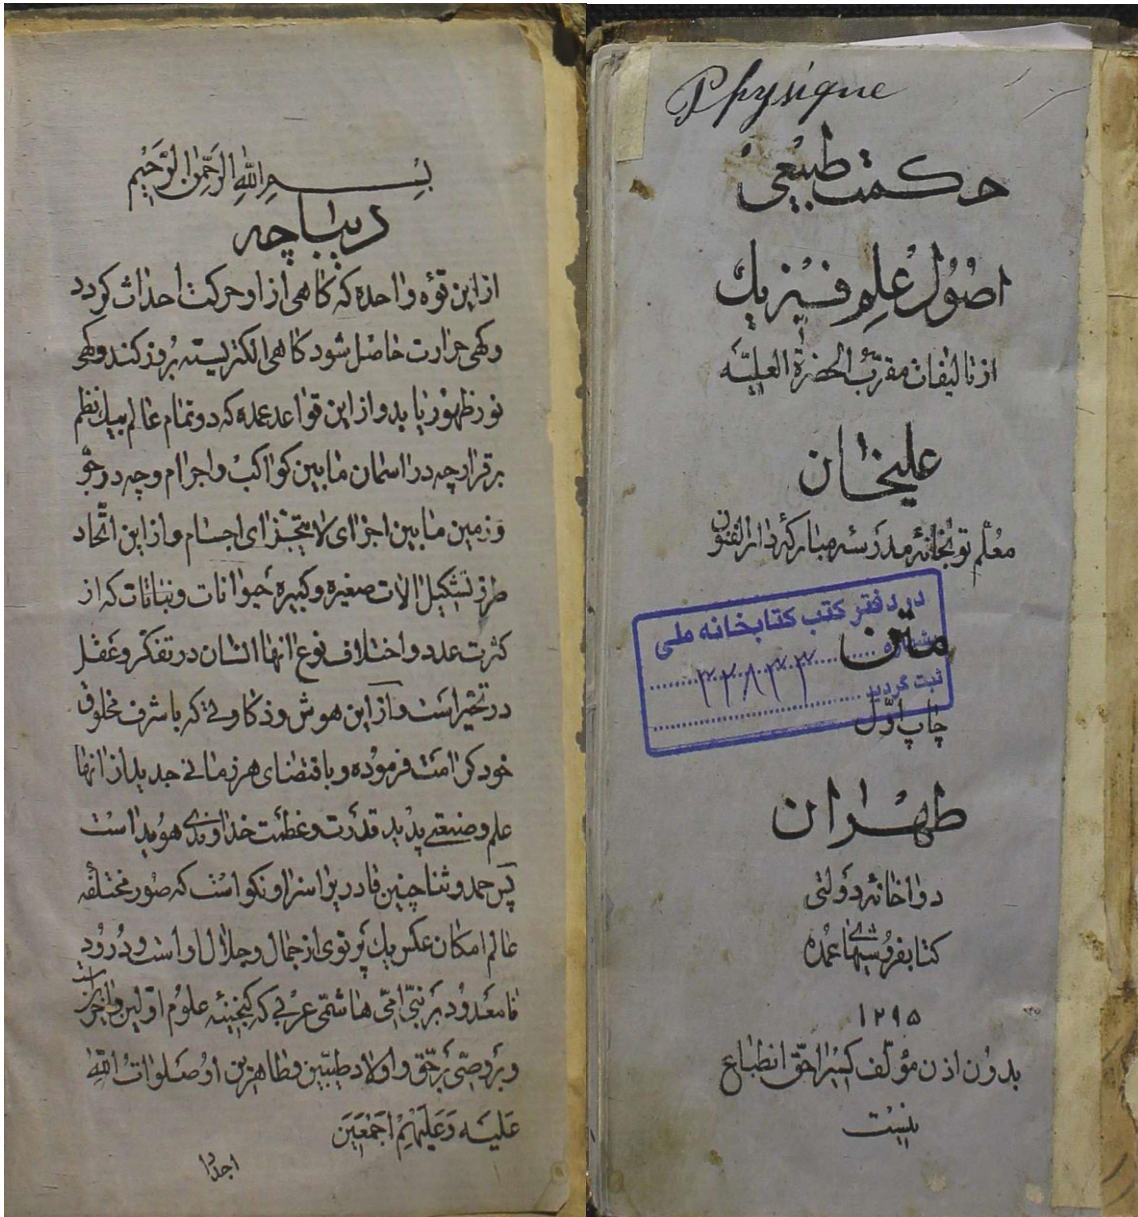 Physique
حکمت طبیعی
اصول علم فیزیک
از تالیفات مقرب الحضرة العلیه
علیخان
معلم توپخانهٔ مدرسه مبارکهٔ دارالفنون
در دفتر کتب کتابخانه ملی
متن
بشماره
ثبت گردید
چاپ اوّل
طهران
دواخانهٔ دولتی
کتابفروشیهای عمده
۱۲۹۵
بدون اذن مؤلف کسیرا حق انطباع
نیست
بسم الله الرحمن الرحیم
دیباچه
از این قوه واحده که کاهی از او حرکت احداث کردد
وکهی حرارت حاصل شود کاهی الکتریسته بروز کند وکهی
نور ظهور یابد و از این قواعد عمده که در تمام عالم بیک نظم
برقرار چه در اسمان مابین کواکب و اجرام وچه در جوّ
و زمین مابین اجزای لایتجزای اجسام و از این اتّحاد
طرز تشکیل الات صغیره و کبیره حیوانات و نباتات که از
کثرت عدد و اختلاف نوع انها انسان در تفکر و عقل
در تحیر است و از این هوش و ذکاوتی که باشرف مخلوق
خود کرامت فرموده و باقتضای هر زمانی جدید از انها
علم و صنعتی پدید قدرت و عظمت خداوندی هویدا است
پس حمد و ثنا چنین قادریرا سزاو نکو است که صور مختلفه
عالم امکان عکس یک پرتوی از جمال و جلال او است و درود
نامعدود بر نبیّ امّی هاشمی عربی که کنجینهٔ علوم اوّلین و اخرین است
و بر وصیّ برحق و اولاد طیبین و طاهرین او صلوات الله
علیه و علیهم اجمعین